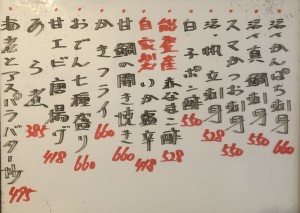 活〆かんぱち刺身 660
活〆真鯛刺身 550
スマカツオ刺身 550
活・帆立刺身 528
白子ポン酢 550
能登産 赤なまこ酢 528
自家製 いか塩辛 418
甘鯛の開き焼き 660
かきフライ 660
おでん七種盛り 660
甘エビ唐揚げ 418
あら煮 385
海老とアスパラバター炒 495